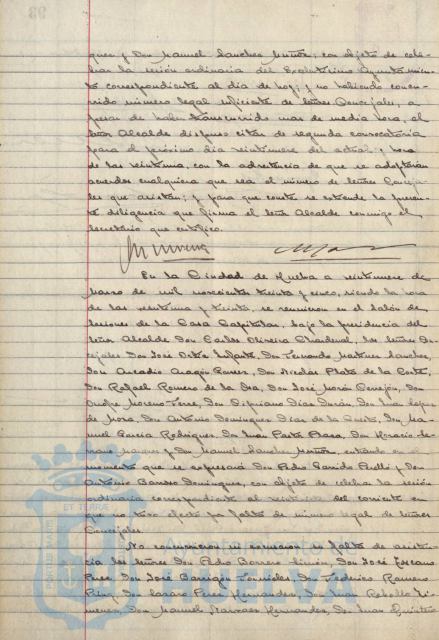 quez y Don Manuel Sanchez Muñoz; con objeto de cele-
brar la sesión ordinaria del Excelentísimo Ayuntamien-
to correspondiente al día de hoy; y no habiendo concu-
rrido número legal suficiente de Señores Concejales, a
pesar de haber transcurrido mas de media hora, el
Señor Alcalde dispuso citar de segunda convocatoria
para el próximo día veintinueve del actual y hora
de las veintiuna, con la advertencia de que se adoptarán
acuerdos cualquiera que sea el número de Señores Conceja-
les que asistan; y para que conste se extiende la presen-
te diligencia que firma el Señor Alcalde conmigo el
Secretario que certifico.
En la Ciudad de Huelva a veintinueve de
Marzo de mil novecientos treinta y cinco, siendo la hora
de las veintiuna y treinta, se reunieron en el Salón de
Sesiones de la Casa Capitular, bajo la presidencia del
Señor Alcalde Don Carlos Oliveira Chardenal, los Señores Con-
cejales Don José Ortiz Infante, Don Fernando Martinez Sanchez,
Don Arcadio Aragón Gomez, Don Nicolás Plata de la Corte,
Don Rafael Romero de la Osa, Don José Morón Cerejon, Don
Onofre Moreno Ferre, Don Cipriano Diaz Durán, Don Juan Lopez
de Mora, Don Antonio Dominguez Diaz de la Cueva, Don Ma-
nuel Garcia Rodriguez, Don Juan Don Horacio
y Don Manuel Sanchez Muñoz, entrando en el
momento que se expresará Don Pedro Garrido Perelló y Don
Antonio Barroso Dominguez, con objeto de celebrar la sesión
ordinaria correspondiente al veintisiete del corriente en
que no tuvo efecto por falta de número legal de Señores
Concejales.
No concurrieron ni excusaron su falta de asisten-
cia los Señores Don Pedro Borrero Limón, Don José Toscano
Perez, Don José Barrigón Fornieles, Don Federico Romero
Don Lazaro Perez Hernandez, Don Juan Rebollo Ji-
menez, Don Manuel Narvaez Hernandez, Don Juan Quintero